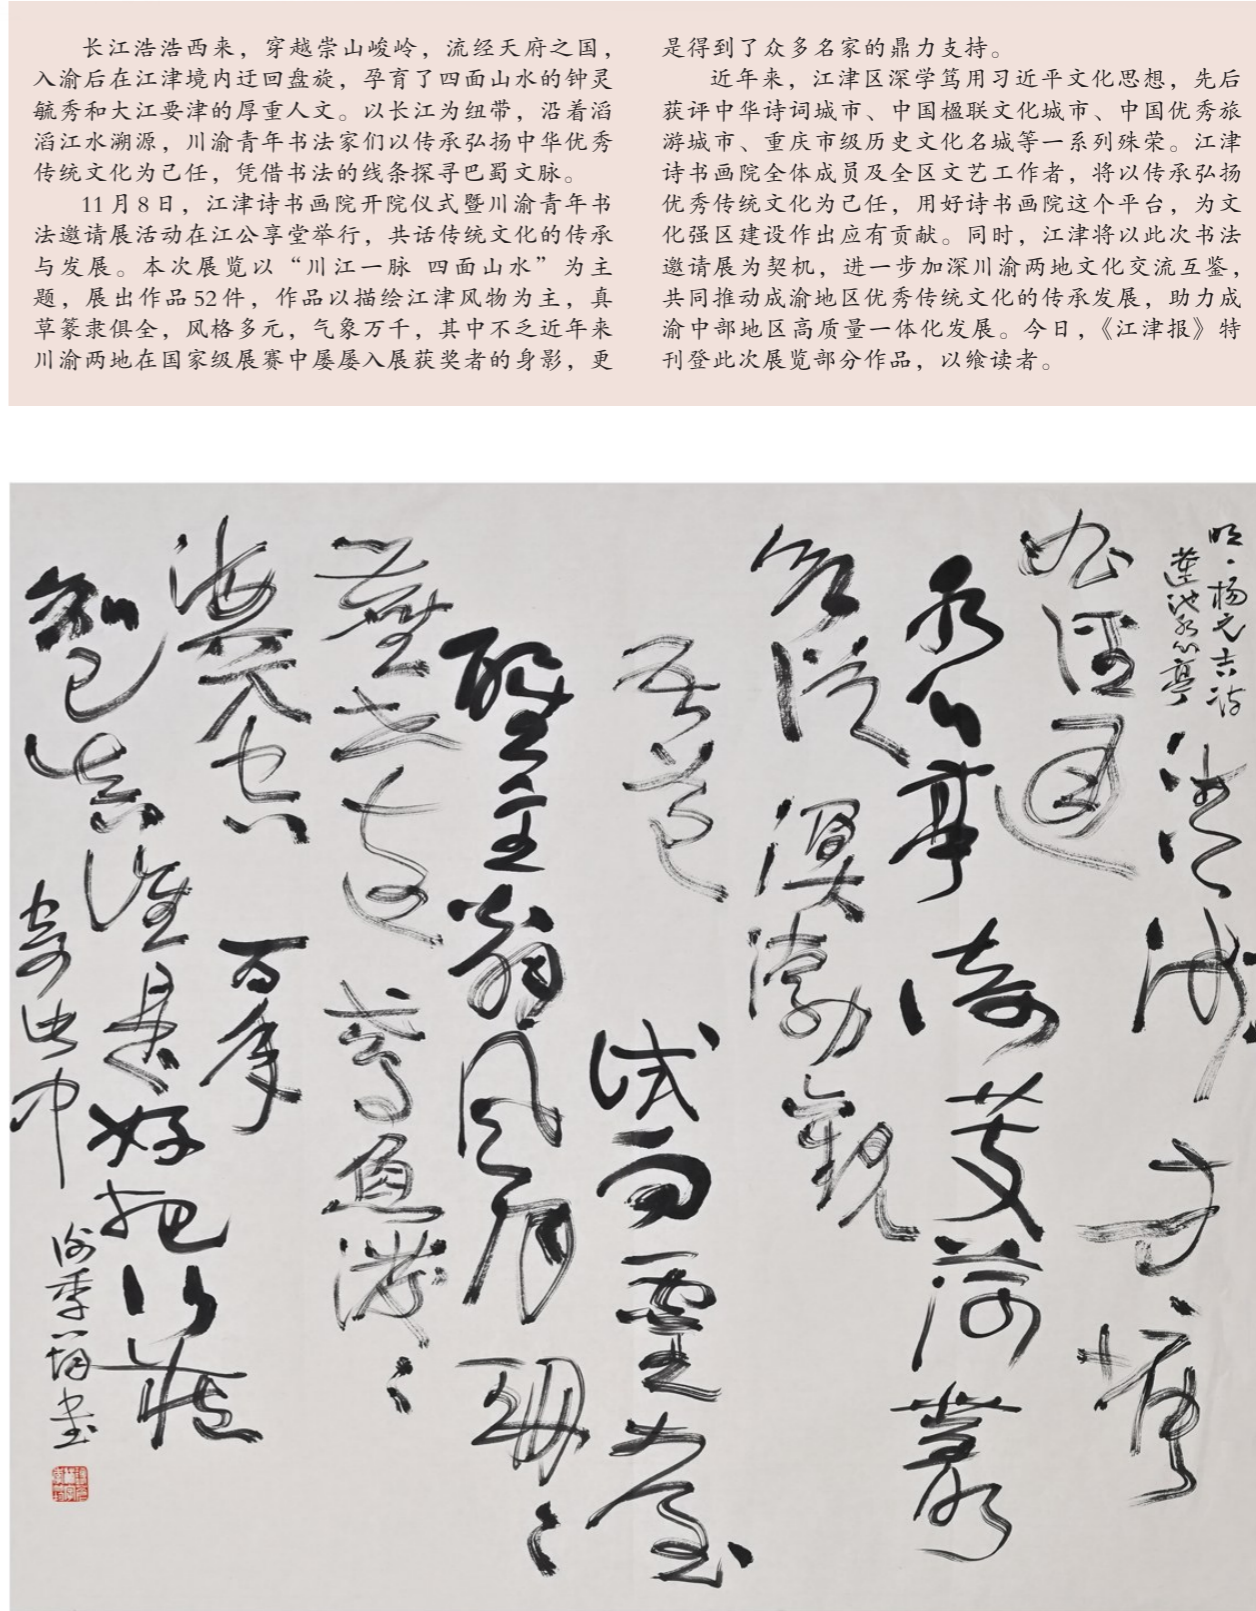 长江浩浩西来，穿越崇山峻岭，流经天府之国，
入渝后在江津境内迂回盘旋，孕育了四面山水的钟灵
毓秀和大江要津的厚重人文。以长江为纽带，沿着滔
滔江水溯源，川渝青年书法家们以传承弘扬中华优秀
传统文化为己任，凭借书法的线条探寻巴蜀文脉。
11月8日，江津诗书画院开院仪式暨川渝青年书
法邀请展活动在江公享堂举行，共话传统文化的传承
与发展。本次展览以“川江一脉 四面山水”为主
题，展出作品52件，作品以描绘江津风物为主，真
草篆隶俱全，风格多元，气象万千，其中不乏近年来
川渝两地在国家级展赛中屡屡入展获奖者的身影，更
是得到了众多名家的鼎力支持。
近年来，江津区深学笃用习近平文化思想，先后
获评中华诗词城市、中国楹联文化城市、中国优秀旅
游城市、重庆市级历史文化名城等一系列殊荣。江津
诗书画院全体成员及全区文艺工作者，将以传承弘扬
优秀传统文化为己任，用好诗书画院这个平台，为文
化强区建设作出应有贡献。同时，江津将以此次书法
邀请展为契机，进一步加深川渝两地文化交流互鉴，
共同推动成渝地区优秀传统文化的传承发展，助力成
渝中部地区高质量一体化发展。今日，《江津报》特
刊登此次展览部分作品，以飨读者。
明·杨元吉诗
莲池水心亭
方塘
幽径通
水心亭 倚芰荷丛
溟渤观
吾道 试向灵台
醒主翁 风月
无去这 鸢鱼泼〻
海天空 百年
知己真谁是 好把行藏
寄此中
书